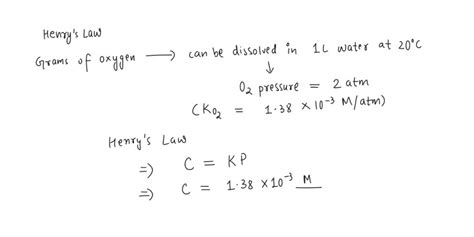 Henry's Law
Grams of oxygen ⟶ can be dissolved in 1L water at 20°C
↓
O₂ pressure = 2 atm
(KO₂ = 1.38 × 10⁻³ M/atm)
Henry's Law
⇒ C = KP
⇒ C = 1.38 × 10⁻³ M